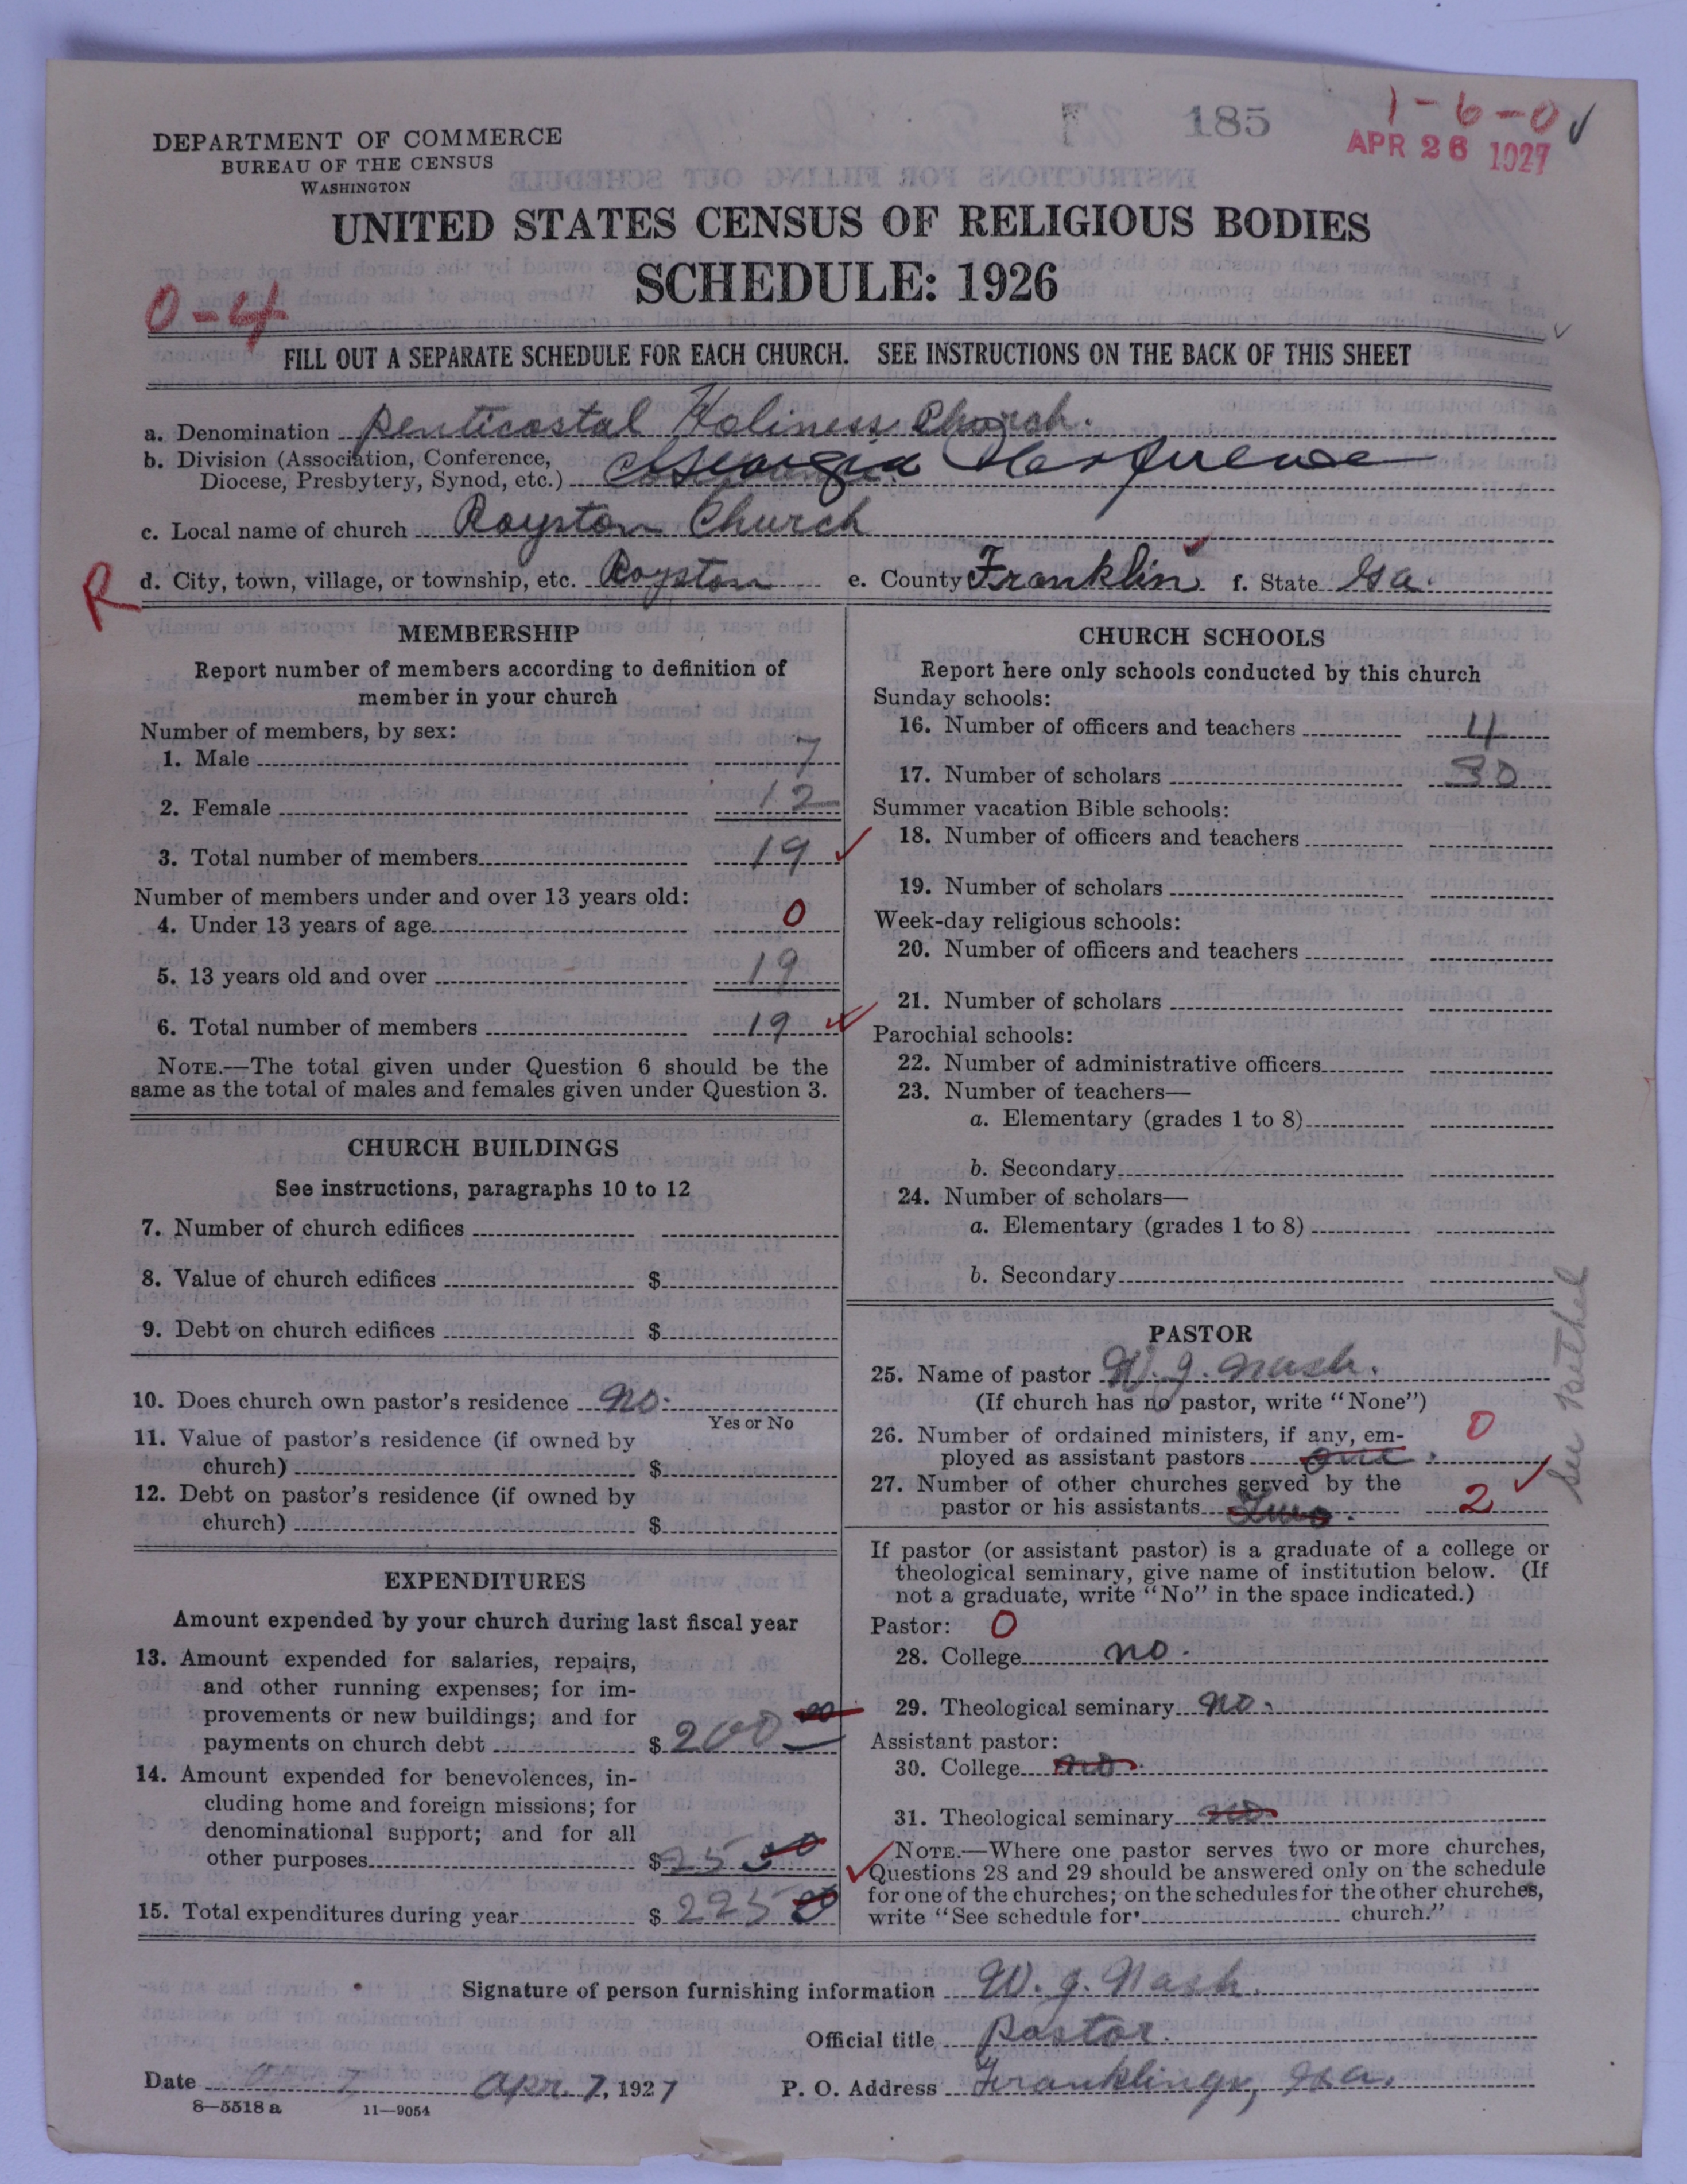 185
1-6-0
APR 26 1927
DEPARTMENT OF COMMERCE
BUREAU OF THE CENSUS
WASHINGTON
UNITED STATES CENSUS OF RELIGIOUS BODIES
SCHEDULE: 1926
0-4
FILL OUT A SEPARATE SCHEDULE FOR EACH CHURCH. SEE INSTRUCTIONS ON THE BACK OF THIS SHEET
a. Denomination Penticostal Holiness Church.
b. Division (Association, Conference,
Diocese, Presbytery, Synod, etc.) Georgia
c. Local name of church Royston Church
R
d. City, town, village, or township, etc. Royston e. County Franklin f. State Ga.
MEMBERSHIP
Report number of members according to definition of
member in your church
Number of members, by sex:
1. Male 7
2. Female 12
3. Total number of members 19
Number of members under and over 13 years old:
4. Under 13 years of age 0
5. 13 years old and over 19
6. Total number of members 19
NOTE.—The total given under Question 6 should be the
same as the total of males and females given under Question 3.
CHURCH BUILDINGS
See instructions, paragraphs 10 to 12
7. Number of church edifices
8. Value of church edifices $
9. Debt on church edifices $
10. Does church own pastor's residence no.
Yes or No
11. Value of pastor's residence (if owned by
church) $
12. Debt on pastor's residence (if owned by
church) $
EXPENDITURES
Amount expended by your church during last fiscal year
13. Amount expended for salaries, repairs,
and other running expenses; for im-
provements or new buildings; and for
payments on church debt $ 200 00
14. Amount expended for benevolences, in-
cluding home and foreign missions; for
denominational support; and for all
other purposes $ 25 00
15. Total expenditures during year $ 225 00
CHURCH SCHOOLS
Report here only schools conducted by this church
Sunday schools:
16. Number of officers and teachers 4
17. Number of scholars 30
Summer vacation Bible schools:
18. Number of officers and teachers
19. Number of scholars
Week-day religious schools:
20. Number of officers and teachers
21. Number of scholars
Parochial schools:
22. Number of administrative officers
23. Number of teachers—
a. Elementary (grades 1 to 8)
b. Secondary
24. Number of scholars—
a. Elementary (grades 1 to 8)
b. Secondary
PASTOR
25. Name of pastor W. J. Nash.
(If church has no pastor, write "None")
26. Number of ordained ministers, if any, em-
ployed as assistant pastors one. 0
27. Number of other churches served by the
pastor or his assistants Two. 2
See Bethel
If pastor (or assistant pastor) is a graduate of a college or
theological seminary, give name of institution below. (If
not a graduate, write "No" in the space indicated.)
Pastor: 0
28. College no.
29. Theological seminary no.
Assistant pastor:
30. College no.
31. Theological seminary no
NOTE.—Where one pastor serves two or more churches,
Questions 28 and 29 should be answered only on the schedule
for one of the churches; on the schedules for the other churches,
write "See schedule for church."
Signature of person furnishing information W. J. Nash.
Official title pastor.
Date Apr. 7, 1927 P. O. Address Franklin Ga.
8—5518 a 11—9054